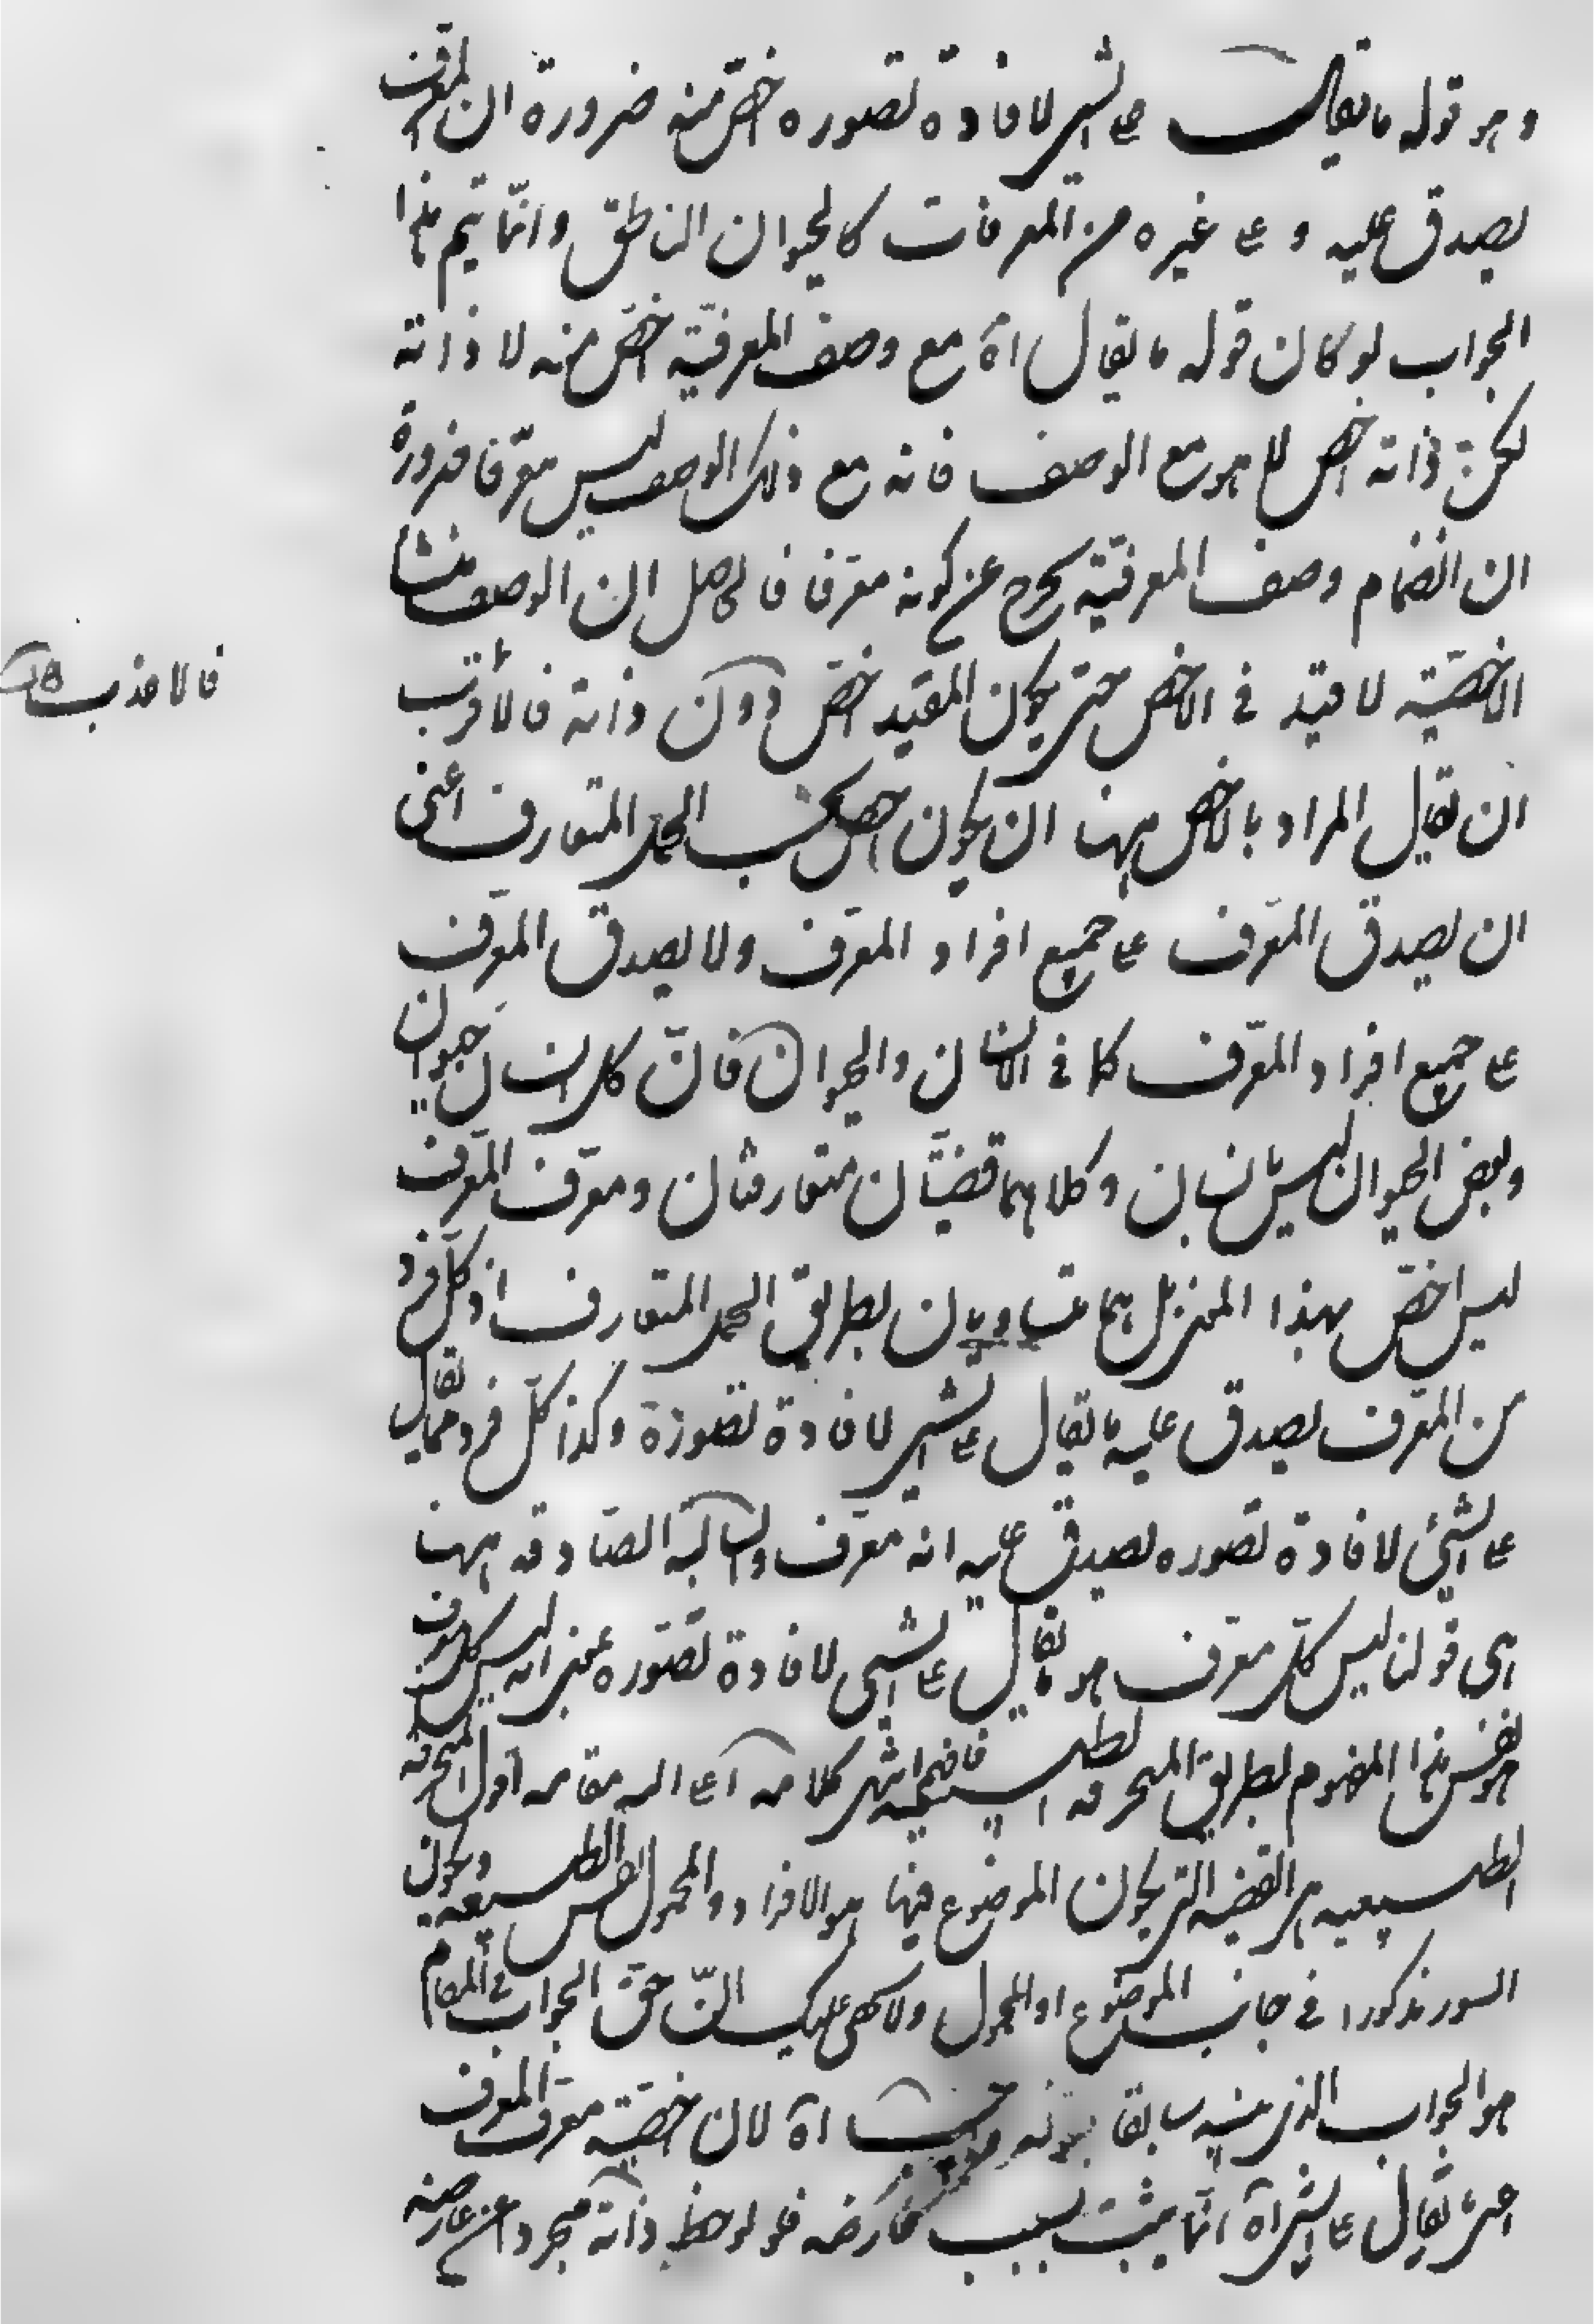 و هو قوله ما يقال على الشي لافادة تصوره اخص منه ضرورة ان المعرف
يصدق عليه و على غيره من المعرفات كالحيوان الناطق وانما يتم هذا
الجواب لو كان قوله ما يقال اه مع وصف المعرفية اخص منه لا ذاته
لكن ذاته اخص لا هو مع الوصف فانه مع ذلك الوصف ليس معرفا ضرورة
ان انضمام وصف المعرفية يخرج عن كونه معرفا فالحاصل ان الوصف منشأ
الاخصية لا قيد في الاخص حتى يكون المقيد اخص دون ذاته فالأقرب
ان يقال المراد بالاخص ههنا ان يكون اخص بحسب الحمل المتعارف اعنى
ان يصدق المعرف على جميع افراد المعرف ولا يصدق المعرف
على جميع افراد المعرف كما في الانسان والحيوان فانّ كل انسان حيوان
وبعض الحيوان ليس بانسان وكلاهما قضيتان متعارفتان ومعرف المعرف
ليس اخص بهذا المعنى بل هما متساويان بطريق الحمل المتعارف اذ كل فرد
من المعرف يصدق عليه ما يقال على الشي لافادة تصوره وكذا كل فرد مما يقال
على الشئ لافادة تصوره يصدق عليه انه معرف والسالبة الصادقه ههنا
هى قولنا ليس كل معرف هو ما يقال على الشى لافادة تصوره بمعنى انه ليس كل معرف
هو نفس هذا المفهوم بطريق المنحرفه الطبيعيه فافهم انتهى كلامه اعلى الله مقامه اقول المنحرفة
الطبيعيه هى القضيه التى يكون الموضوع فيها هو الافراد والمحمول نفس الطبيعه ويكون
السور مذكورا في جانب الموضوع او المحمول ولا يخفى عليك انّ حق الجواب في المقام
هو الجواب الذى سابقا بقوله اه لان اخصية معرف المعرف
اعنى ما يقال على الشى اه انما يثبت بسبب عارضه فلو لوحظ ذاته مجردا عن عارضه